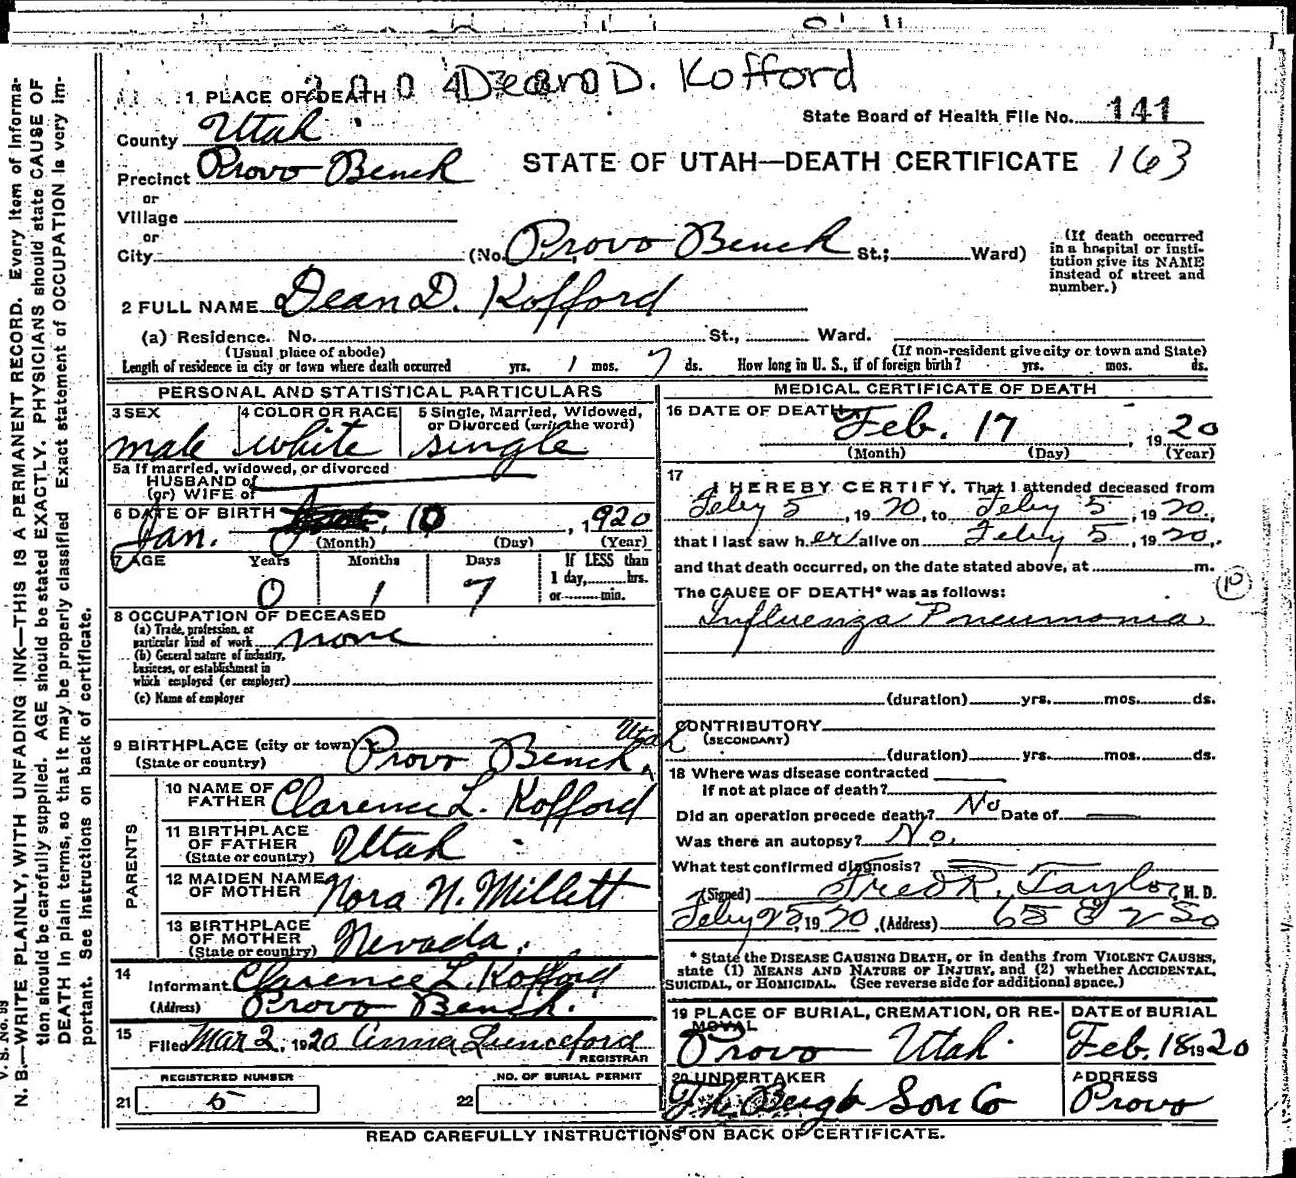 Dean D. Kofford
1 PLACE OF DEATH
State Board of Health File No. 141
County Utah
STATE OF UTAH—DEATH CERTIFICATE 163
Precinct Provo Bench
or
Village
or
City (No. Provo Bench St.; Ward)
(If death occurred in a hospital or institution give its NAME instead of street and number.)
2 FULL NAME Dean D. Kofford
(a) Residence. No. St., Ward.
(Usual place of abode) (If non-resident give city or town and State)
Length of residence in city or town where death occurred yrs. 1 mos. 7 ds. How long in U. S., if of foreign birth? yrs. mos. ds.
PERSONAL AND STATISTICAL PARTICULARS
3 SEX male
4 COLOR OR RACE white
5 Single, Married, Widowed, or Divorced (write the word) single
5a If married, widowed, or divorced
HUSBAND of
(or) WIFE of
6 DATE OF BIRTH Jan. 10, 1920
(Month) (Day) (Year)
7 AGE Years Months Days If LESS than
1 day, hrs.
or min.
0 1 7
8 OCCUPATION OF DECEASED
(a) Trade, profession, or
particular kind of work none
(b) General nature of industry,
business, or establishment in
which employed (or employer)
(c) Name of employer
9 BIRTHPLACE (city or town) Provo Bench, Utah
(State or country)
PARENTS
10 NAME OF FATHER Clarence L. Kofford
11 BIRTHPLACE OF FATHER Utah
(State or country)
12 MAIDEN NAME OF MOTHER Nora N. Millett
13 BIRTHPLACE OF MOTHER Nevada.
(State or country)
14 Informant Clarence L. Kofford
(Address) Provo Bench.
15 Filed Mar 2, 1920 Lunceford
REGISTRAR
REGISTERED NUMBER
21 5
NO. OF BURIAL PERMIT
22
MEDICAL CERTIFICATE OF DEATH
16 DATE OF DEATH Feb. 17, 1920
(Month) (Day) (Year)
17 I HEREBY CERTIFY, That I attended deceased from
Feby 5, 1920, to Feby 5, 1920,
that I last saw her alive on Feby 5, 1920,
and that death occurred, on the date stated above, at m.
The CAUSE OF DEATH* was as follows:
10
Influenza Pneumonia.
(duration) yrs. mos. ds.
CONTRIBUTORY
(SECONDARY)
(duration) yrs. mos. ds.
18 Where was disease contracted
If not at place of death?
Did an operation precede death? No Date of
Was there an autopsy? No.
What test confirmed diagnosis?
(Signed) Fred R. Taylor, M. D.
Feby 25, 1920 (Address) 65 E 2 So
* State the DISEASE CAUSING DEATH, or in deaths from VIOLENT CAUSES,
state (1) MEANS AND NATURE OF INJURY, and (2) whether ACCIDENTAL,
SUICIDAL, or HOMICIDAL. (See reverse side for additional space.)
19 PLACE OF BURIAL, CREMATION, OR REMOVAL
Provo Utah.
DATE of BURIAL
Feb. 18 1920
20 UNDERTAKER
The Berg & Son Co
ADDRESS
Provo
READ CAREFULLY INSTRUCTIONS ON BACK OF CERTIFICATE.
V. S. No. 99
N. B.—WRITE PLAINLY, WITH UNFADING INK—THIS IS A PERMANENT RECORD. Every item of information should be carefully supplied. AGE should be stated EXACTLY. PHYSICIANS should state CAUSE OF DEATH in plain terms, so that it may be properly classified. Exact statement of OCCUPATION is very important. See instructions on back of certificate.